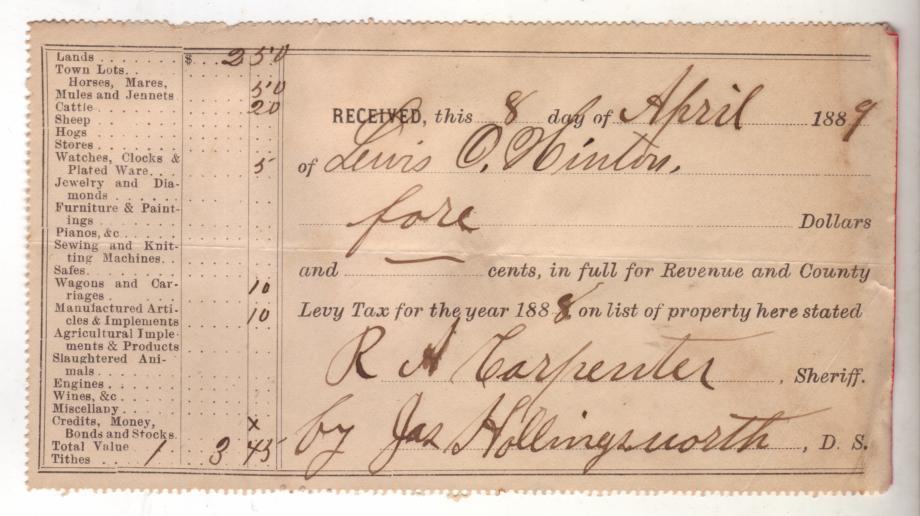 Lands $ 250
Town Lots
Horses, Mares,
Mules and Jennets 50
Cattle 20
Sheep
Hogs
Stores
Watches, Clocks &
Plated Ware 5
Jewelry and Dia-
monds
Furniture & Paint-
ings
Pianos, &c
Sewing and Knit-
ting Machines
Safes
Wagons and Car-
riages 10
Manufactured Arti-
cles & Implements 10
Agricultural Imple-
ments & Products
Slaughtered Ani-
mals
Engines
Wines, &c
Miscellany
Credits, Money, x
Bonds and Stocks
Total Value
Tithes 1 3 45
RECEIVED, this 8 day of April 1889
of Lewis O. Hinton,
fore Dollars
and cents, in full for Revenue and County
Levy Tax for the year 1888 on list of property here stated
R A Carpenter, Sheriff.
by Jas Hollingsworth, D. S.